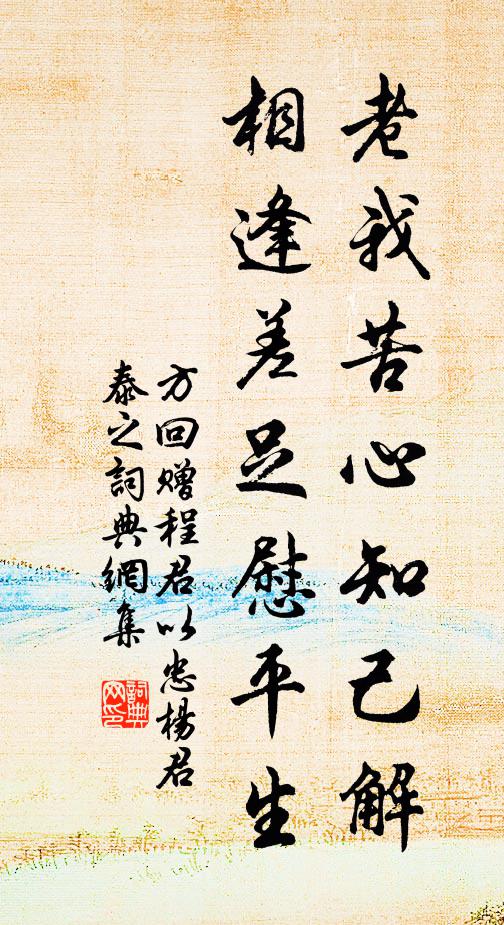 老我苦心知己解
相逢差足慰平生
方回赠程君以忠楊君
泰之詞典網集
詞典
网印